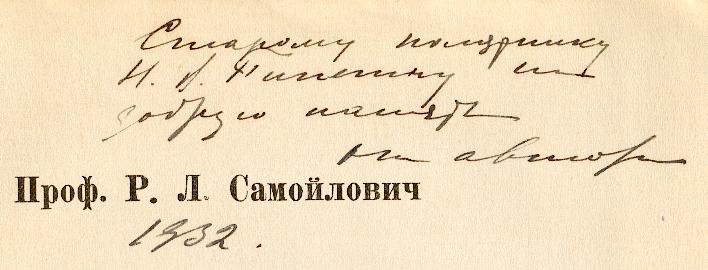 Старому полярнику
Н. В. Пинегину на
добрую память
от автора
Проф. Р. Л. Самойлович
1932.